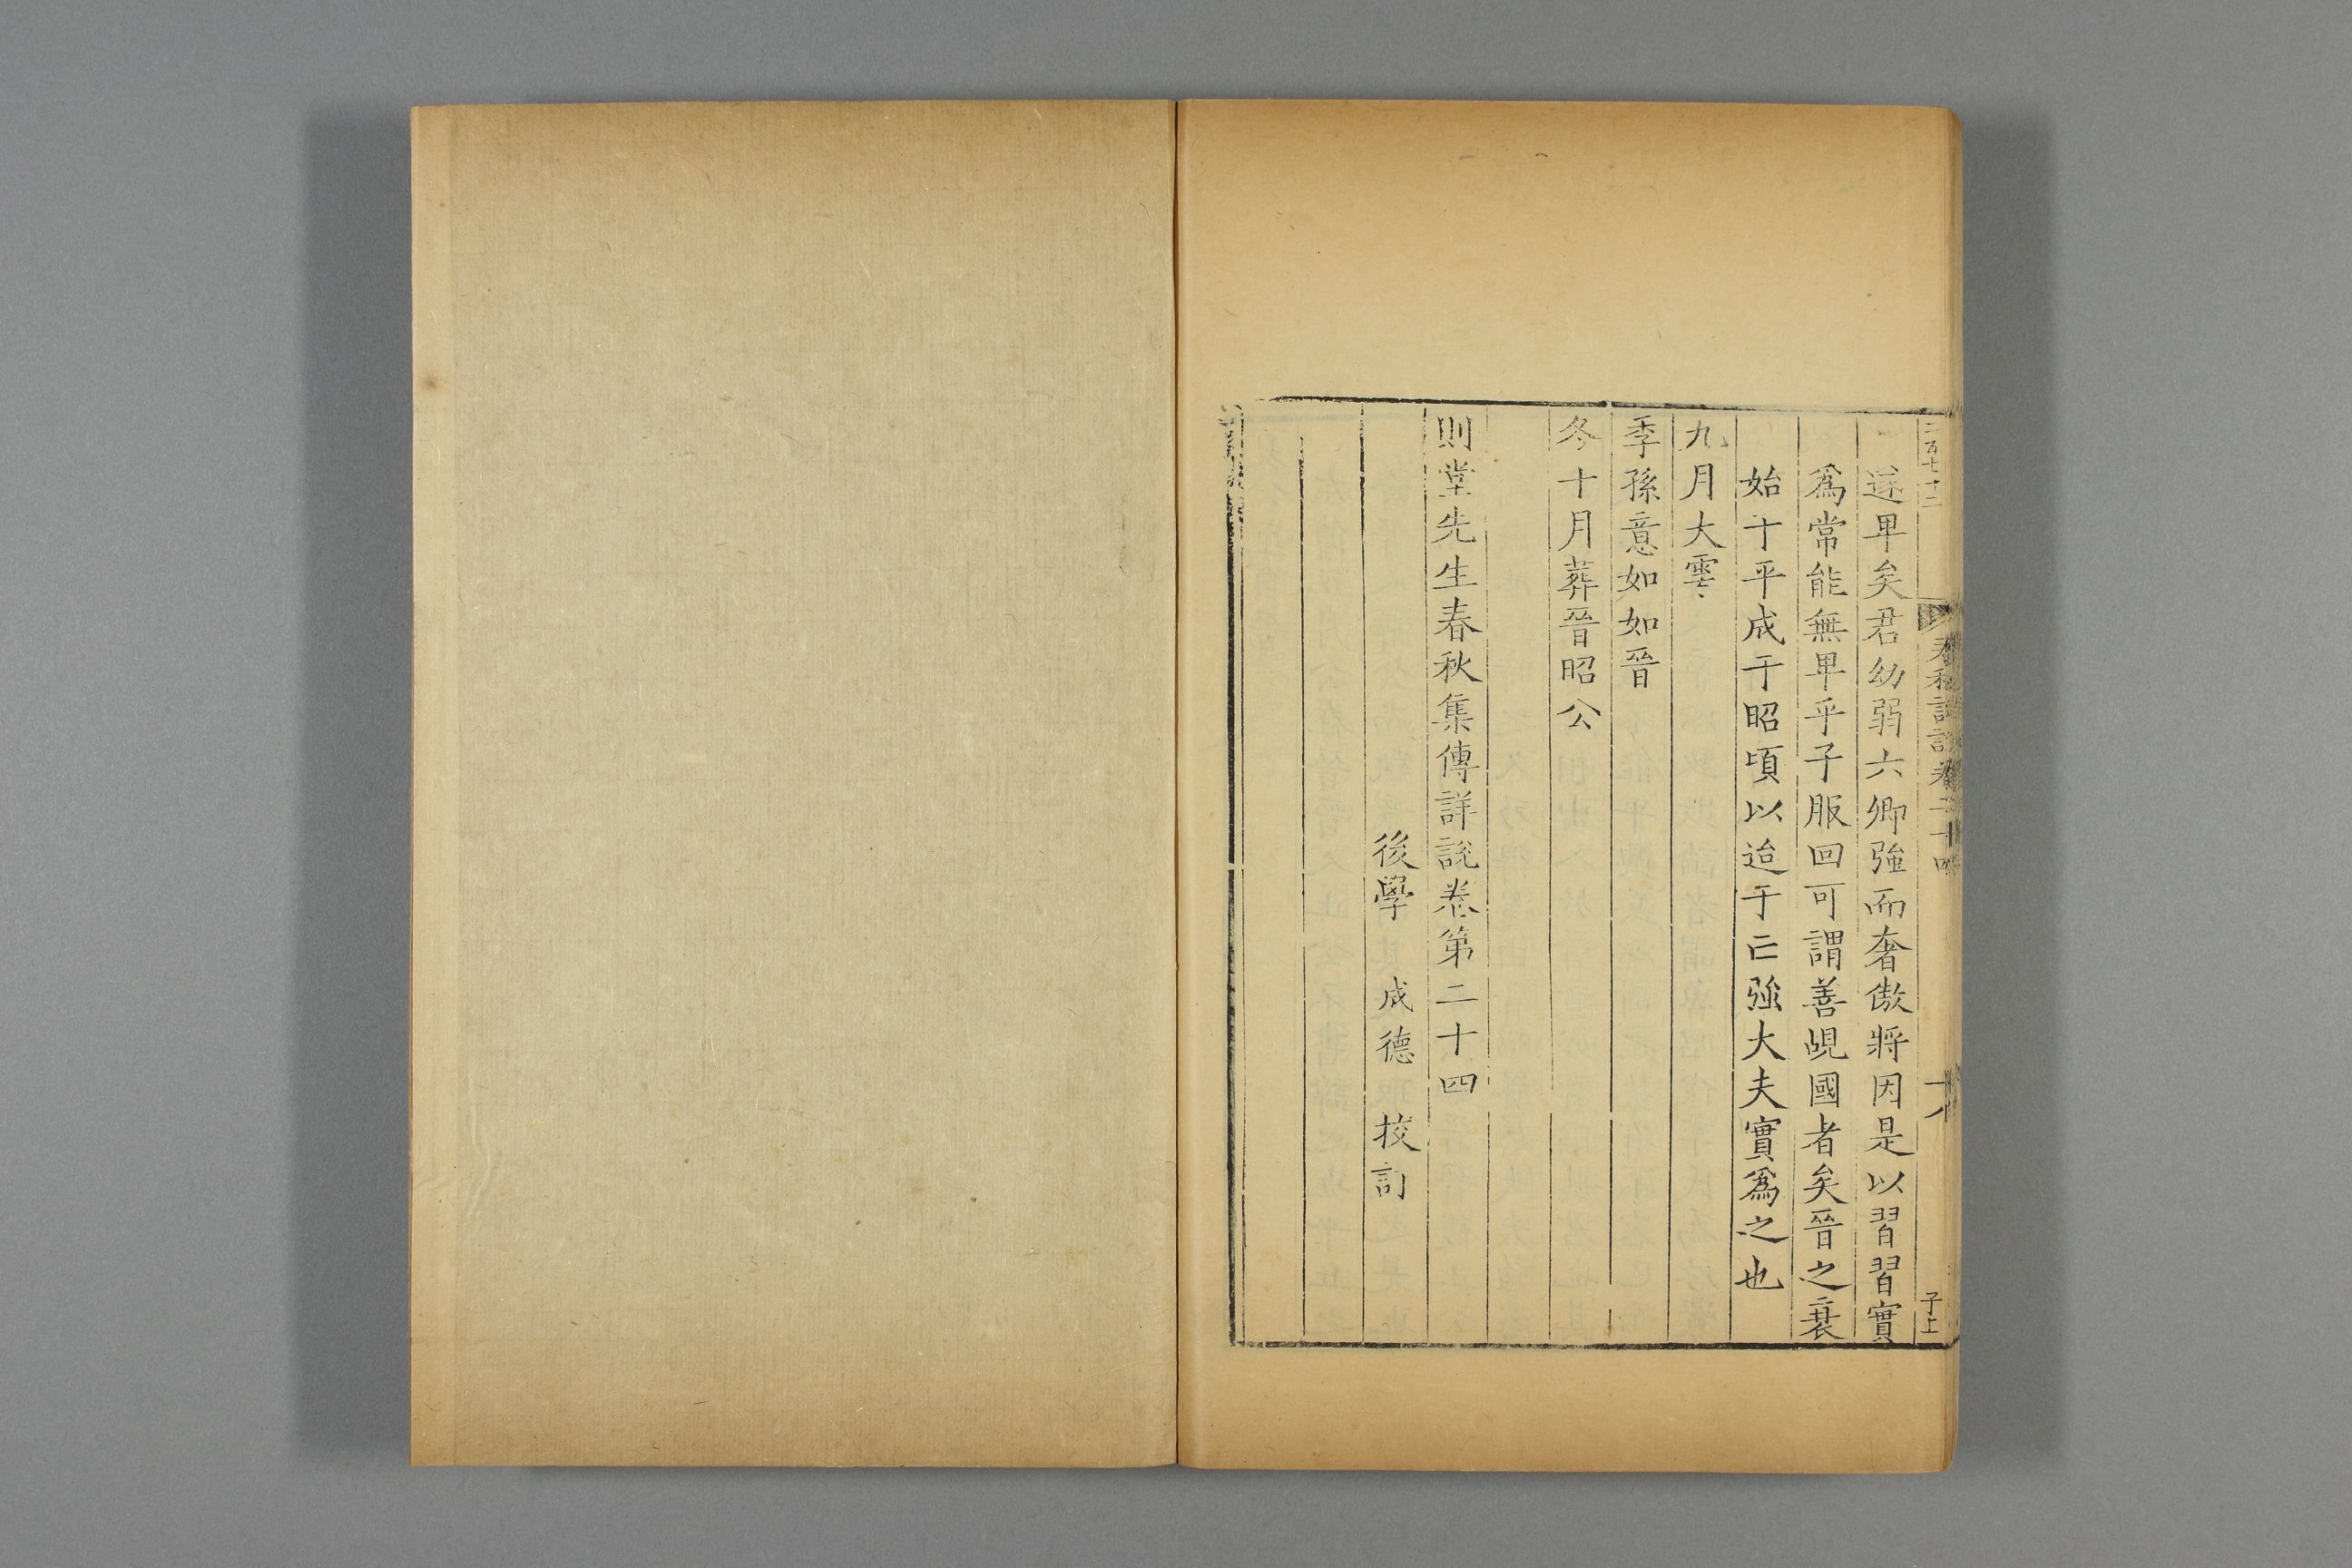 二百七十二
春秋詳說卷二十四
十八
子上
遂卑矣君幼弱六卿強而奢傲將因是以習習實
爲常能無卑乎子服回可謂善覘國者矣晉之衰
始于平成于昭頃以迨于亡強大夫實爲之也
九月大雩
季孫意如如晉
冬十月葬晉昭公
則堂先生春秋集傳詳說卷第二十四
後學 成德 挍訂